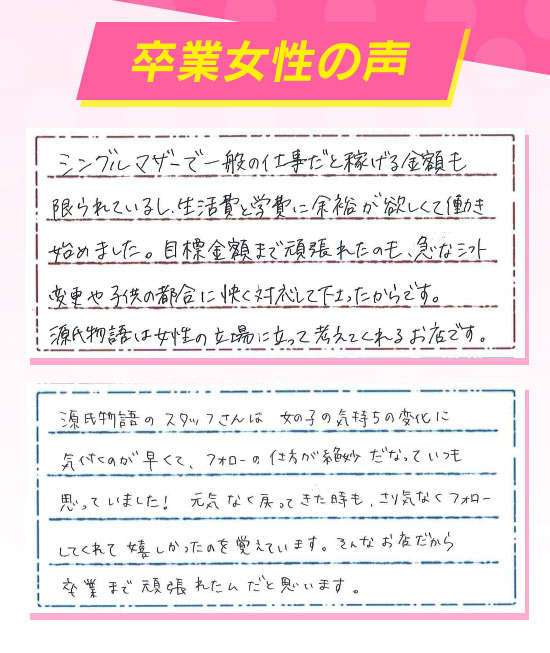 卒業女性の声
シングルマザーで一般の仕事だと稼げる金額も
限られているし、生活費と学費に余裕が欲しくて働き
始めました。目標金額まで頑張れたのも、急なシフト
変更や子供の都合に快く対応して下さったからです。
源氏物語は女性の立場に立って考えてくれるお店です。
源氏物語のスタッフさんは 女の子の気持ちの変化に
気付くのが早くて、フォローの仕方が絶妙だなっていつも
思っていました! 元気なく戻ってきた時も、さり気なくフォロー
してくれて嬉しかったのを覚えています。そんなお店だから
卒業まで頑張れたんだと思います。